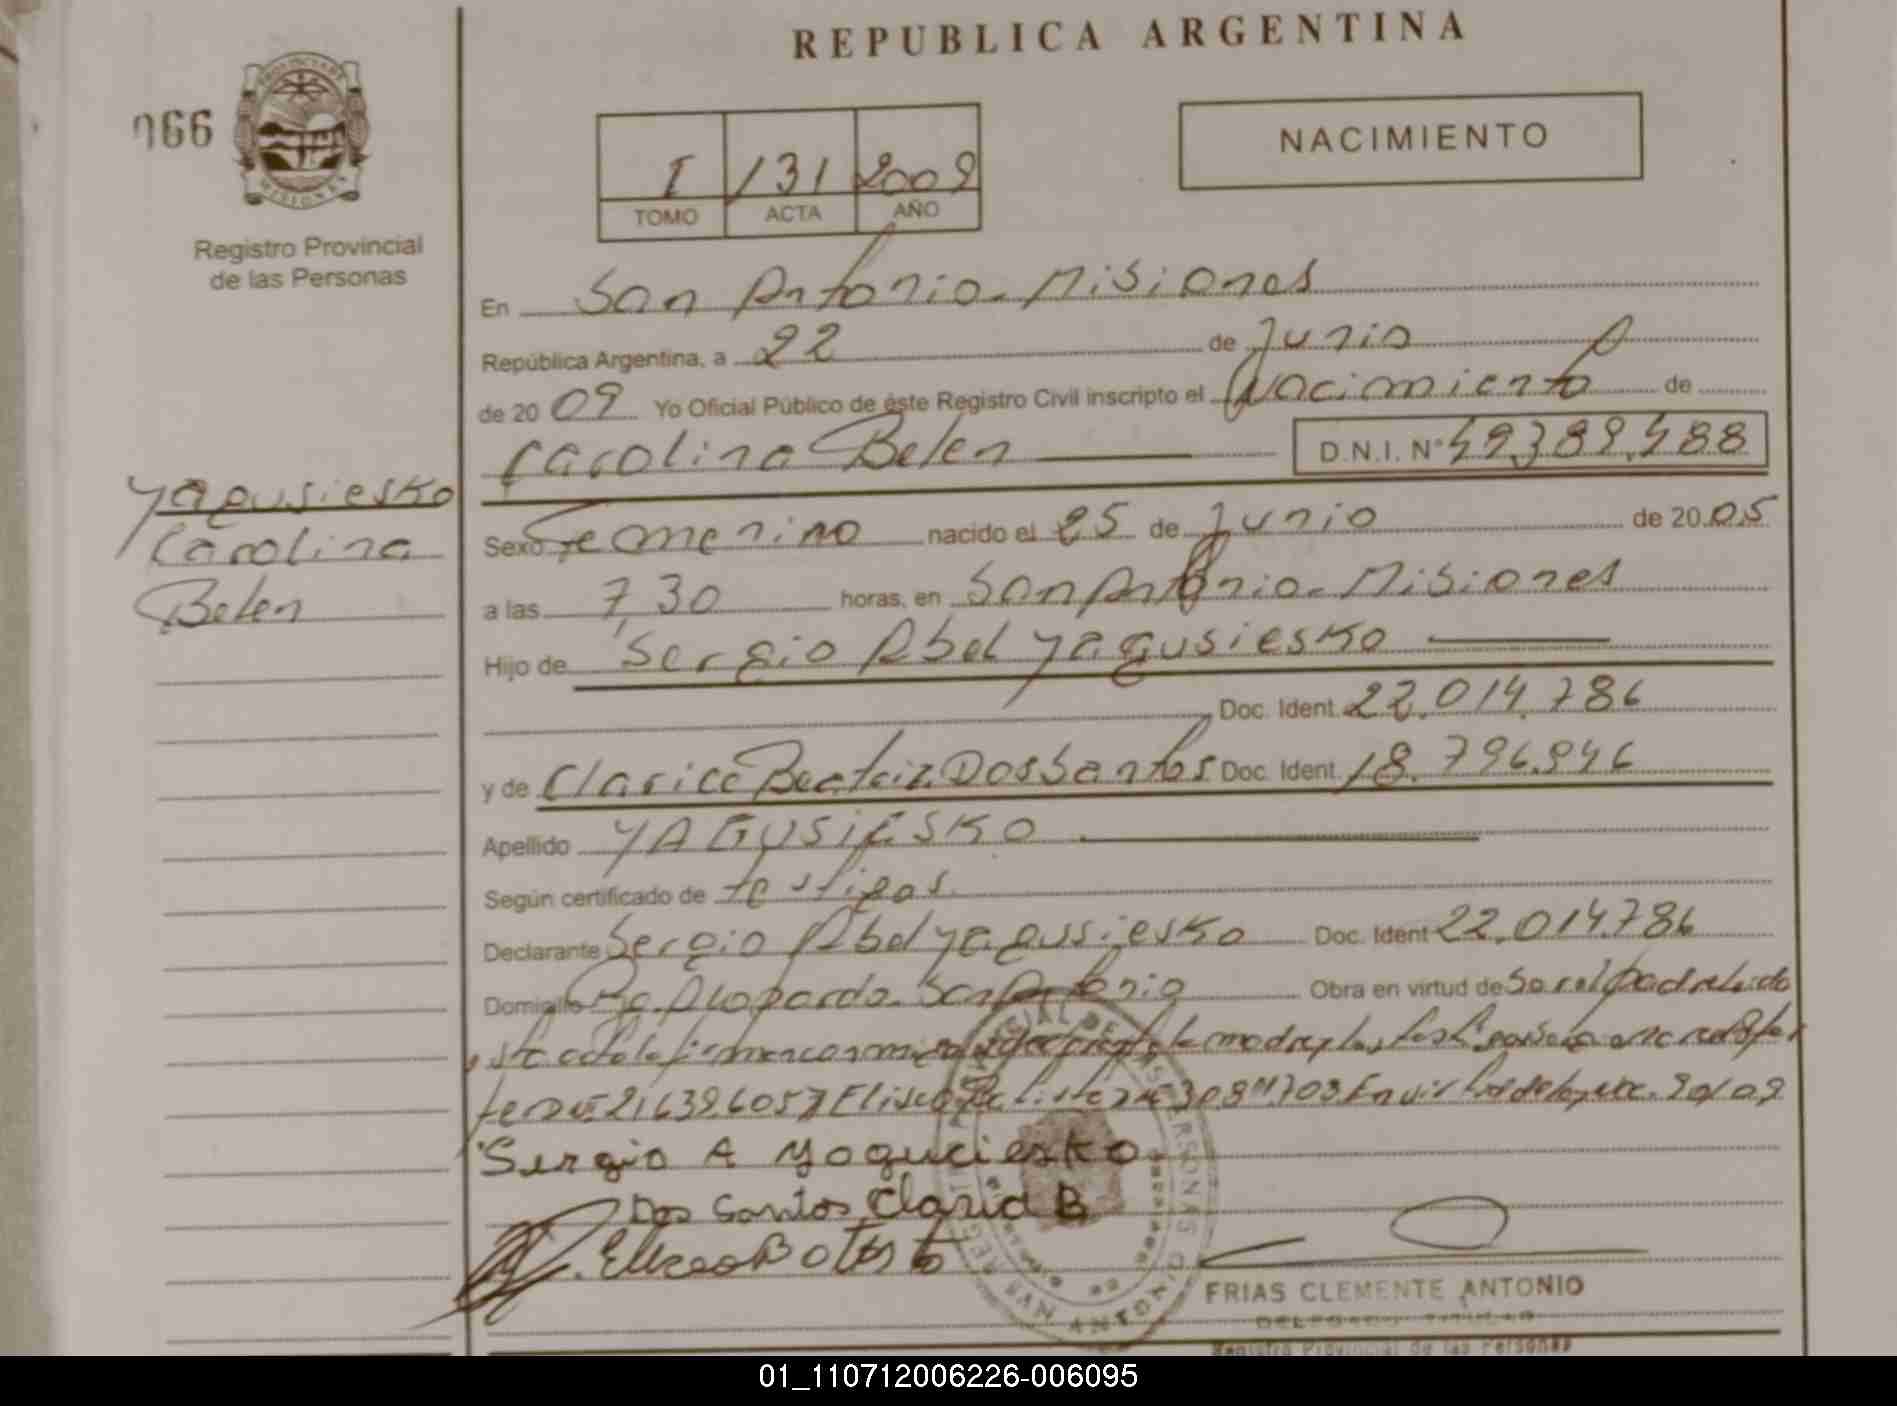 REPUBLICA ARGENTINA
066
PROVINCIA DE
MISIONES
Registro Provincial
de las Personas
I 131 2009
TOMO ACTA AÑO
NACIMIENTO
En San Antonio - Misiones
República Argentina, a 22 de Junio
de 2009 Yo Oficial Público de éste Registro Civil inscripto el Nacimiento de
Carolina Belen D.N.I. Nº 49.389.488
Yagusiesko
Carolina
Belen
Sexo Femenino nacido el 25 de Junio de 2005
a las 7,30 horas, en San Antonio - Misiones
Hijo de Sergio Abel Yagusiesko
Doc. Ident. 22.014.786
y de Clarice Beatriz Dos Santos Doc. Ident. 18.796.946
Apellido YAGUSIESKO
Según certificado de testigos
Declarante Sergio Abel Yagusiesko Doc. Ident 22.014.786
Domicilio San Antonio Obra en virtud de Ser el padre
Sergio A Yoguciesko
Dos Santos Claricid B
FRIAS CLEMENTE ANTONIO
DELEGADO TITULAR
Registro Provincial de las Personas
01_110712006226-006095